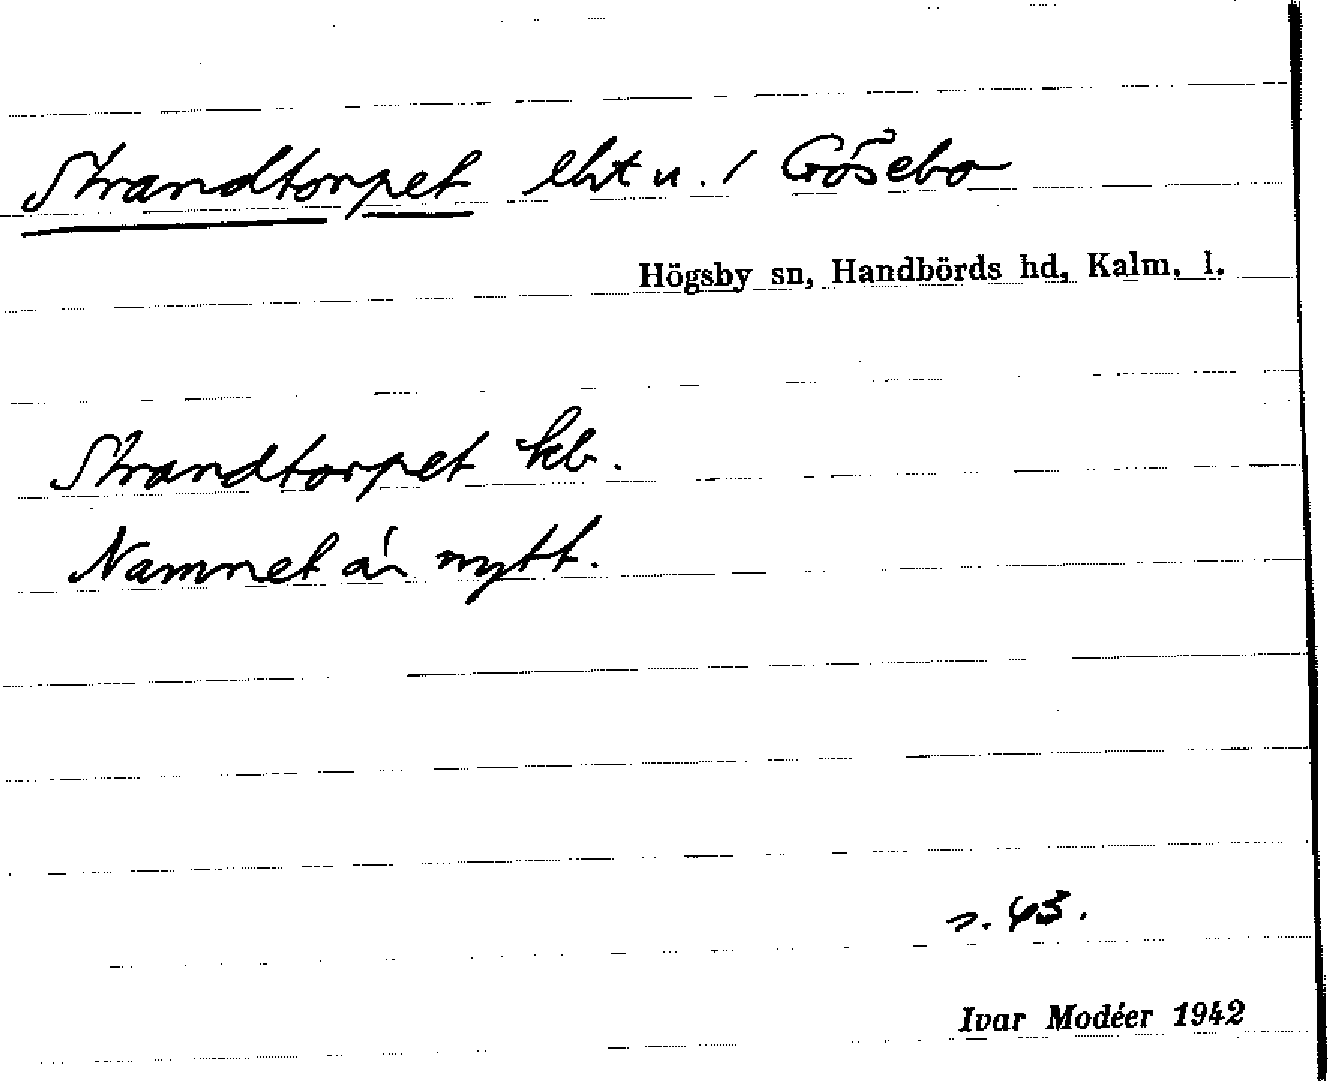 Strandtorpet lht u. / Gösebo
Högsby sn, Handbörds hd, Kalm. l.
Strandtorpet kb.
Namnet är nytt.
s. 43.
Ivar Modéer 1942